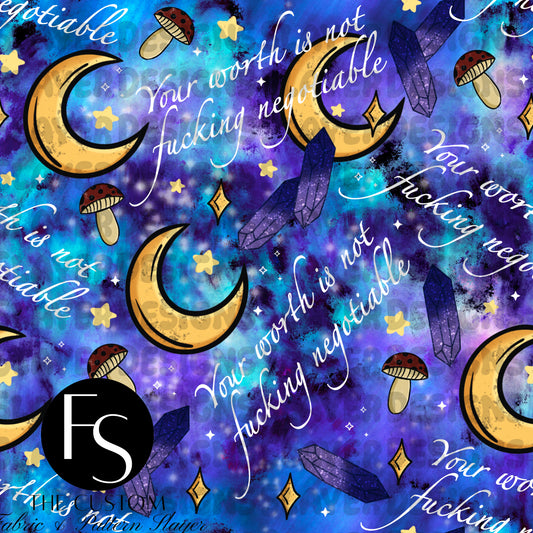 negotiable
Your worth is not
fucking negotiable
Your worth is not
fucking negotiable
worth is not
negotiable
Your worth is not
fucking negotiable
FS
THE CUSTOM
Fabric & Pattern Slayer
Your worth
fucking
worth is not